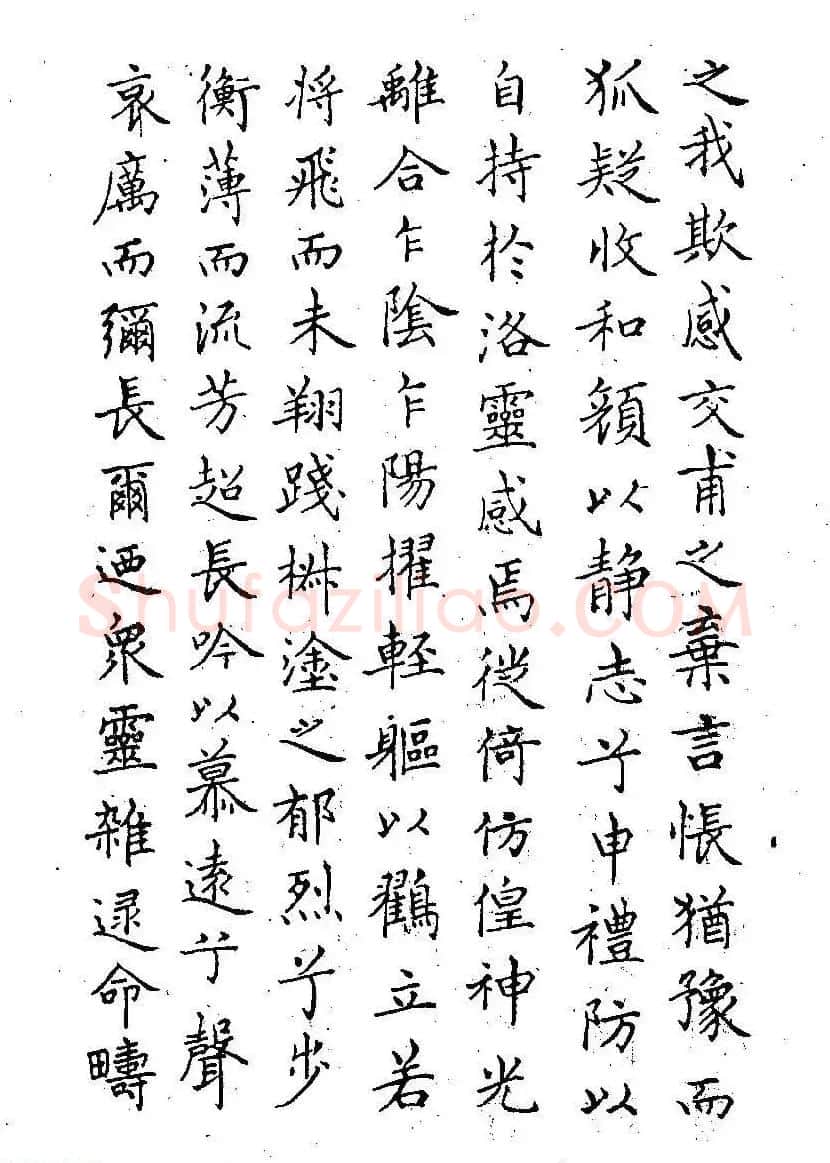 之我欺感交甫之棄言悵猶豫而
狐疑收和顏以静志兮申禮防以
自持於洛靈感焉徙倚仿偟神光
離合乍陰乍陽擢輕軀以鶴立若
將飛而未翔踐椒塗之郁烈兮步
衡薄而流芳超長吟以慕遠兮聲
哀厲而彌長爾迺衆靈雜遝命疇
Shufaziliao.COM